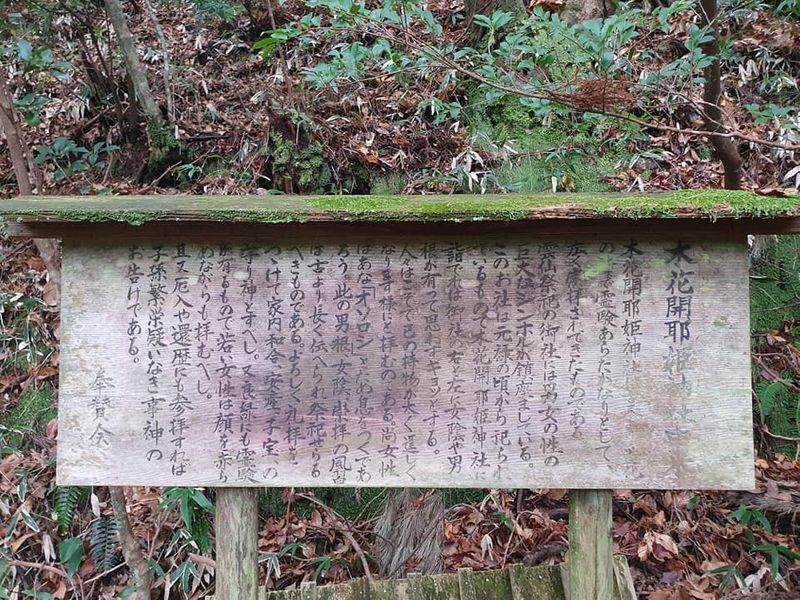 木花開耶姫神社由来
木花開耶姫神社は
の神で霊験あらたかなりとして、
庶民に信仰されてきたものである
雲仙祭祀の御社には男女の性の
巨大なシンボルが鎮座している。
このお社は元禄の頃から祀られ
ているもので木花開耶姫神社に
詣でれば御社の右と左に女陰や男
根が有って思わずギョッとする。
人々はこぞって己の持物が太く逞しく
なります様にと拝むのである。尚女性
はあな「オソロシ」とため息をつくであ
ろう。此の男根、女陰崇拝の風習
は古より長く伝へられ祭祀せらる
べきものである。よろしく礼拝を
つゞけて家内和合、安産、子宝の
守り神とすべし。又良縁にも霊験
が有るもので若い女性は顔を赤ら
めながらも拝むべし。
且又厄入や還暦にも参拝すれば
子孫繁栄疑いなき事神の
お告げである。
奉賛会